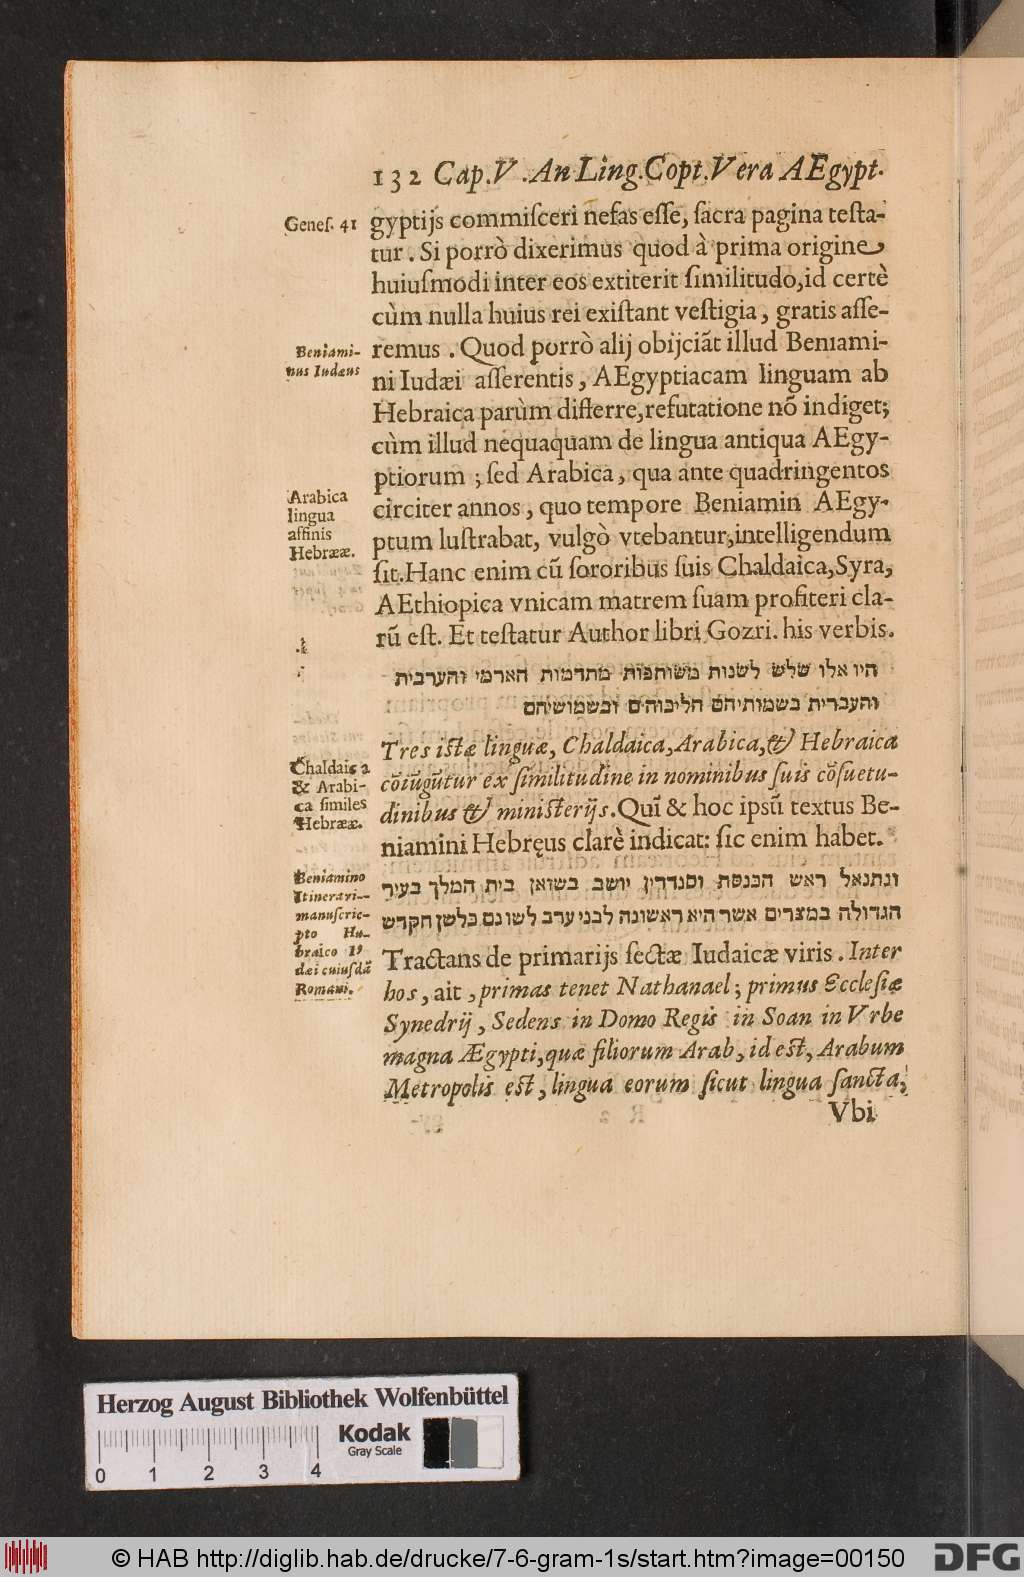 132 Cap. V. An Ling. Copt. Vera AEgypt.
Geneſ. 41
gyptijs commiſceri nefas eſſe, ſacra pagina teſta-
tur. Si porrò dixerimus quod à prima origine
huiuſmodi inter eos extiterit ſimilitudo, id certè
cùm nulla huius rei exiſtant veſtigia, gratis aſſe-
Beniami-
nus Iudæus
remus. Quod porrò alij obijciãt illud Beniami-
ni Iudæi aſſerentis, AEgyptiacam linguam ab
Hebraica parùm diſterre, refutatione nõ indiget;
cùm illud nequaquam de lingua antiqua AEgy-
ptiorum; ſed Arabica, qua ante quadringentos
Arabica
lingua
affinis
Hebrææ.
circiter annos, quo tempore Beniamin AEgy-
ptum luſtrabat, vulgò vtebantur, intelligendum
ſit. Hanc enim cũ ſororibus ſuis Chaldaica, Syra,
AEthiopica vnicam matrem ſuam profiteri cla-
rũ eſt. Et teſtatur Author libri Gozri. his verbis.
היו אלו שלש לשנות משותפות מתדמות הארמי והערבית
והעברית בשמותיהם הליכוהים ובשמושיהם
Tres iſtæ linguæ, Chaldaica, Arabica, & Hebraica
Chaldaica
& Arabi-
ca ſimiles
Hebrææ.
cõiũgũtur ex ſimilitudine in nominibus ſuis cõſuetu-
dinibus & miniſterijs. Quĩ & hoc ipſũ textus Be-
niamini Hebręus clarè indicat: ſic enim habet.
Beniamino
Itinerari--
manuſcrip-
pto He-
braico Iu
dæi cuiuſdã
Romani.
ונתנאל ראש הכנסת וסנדרין יושב בשואן בית המלך בעיר
הגדולה במצרים אשר היא ראשונה לבני ערב לשונם כלשן הקדש
Tractans de primarijs ſectæ Iudaicæ viris. Inter
hos, ait, primas tenet Nathanael; primus Eccleſiæ
Synedrij, Sedens in Domo Regis in Soan in Vrbe
magna Ægypti, quæ filiorum Arab, id eſt, Arabum
Metropolis eſt, lingua eorum ſicut lingua ſancta,
Vbi
Herzog August Bibliothek Wolfenbüttel
Kodak
Gray Scale
0 1 2 3 4
© HAB http://diglib.hab.de/drucke/7-6-gram-1s/start.htm?image=00150
DFG